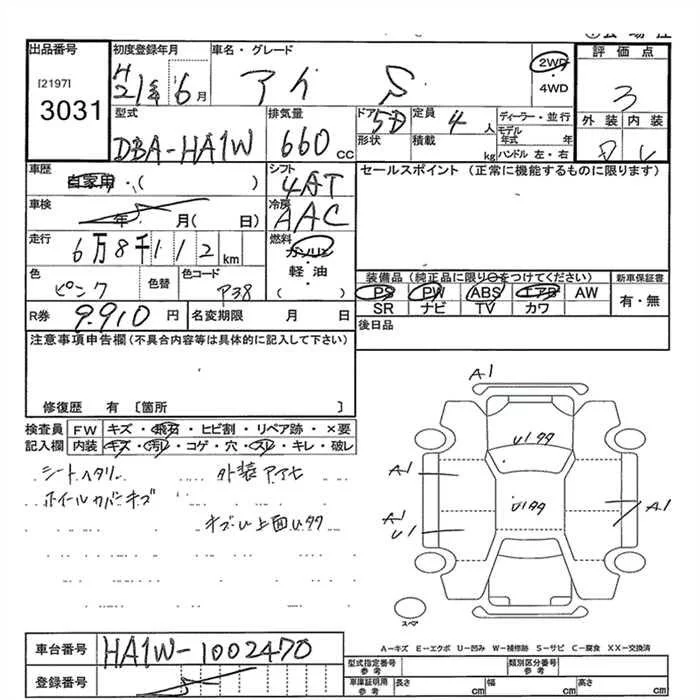 出品番号 初度登録年月 車名・グレード 評価点
[2197] H21年6月 アイ S 2WD・4WD 3
3031
型式 排気量 ドア 5D 定員 4人 ディーラー・並行 外装 内装
DBA-HA1W 660cc 形状 積載 kg モデル年式 年 ハンドル 左・右
車歴 自家用・( ) シフト 4AT セールスポイント (正常に機能するものに限ります)
車検 年 月( 日) 冷房 AAC
走行 6万8千112km 燃料 ガソリン・軽油・( )
色 ピンク 色替 色コード A38 装備品(純正品に限り○をつけてください) 新車保証書
PS PW ABS エアB AW 有・無
SR ナビ TV カワ
R券 9,910円 名変期限 月 日 後日品
注意事項申告欄(不具合内容等は具体的に記入して下さい)
修復歴 有 〔箇所 〕
検査員記入欄 FW キズ・飛石・ヒビ割・リペア跡・×要
内装 キズ・汚れ・コゲ・穴・スレ・キレ・破レ
シートヘタリ 外装アアセ
ホイールカバーキズ
キズ・U 上面Uタタ
A1
Uタタ
A1
Uタタ
A1
A1
U1
スペア
A-キズ E-エクボ U-凹み W-補修跡 S-サビ C-腐食 XX-交換済
車台番号 HA1W-1002470 型式指定番号 参考 類別区分番号 参考
登録番号 車庫証明用 参考 長さ cm 幅 cm 高さ cm